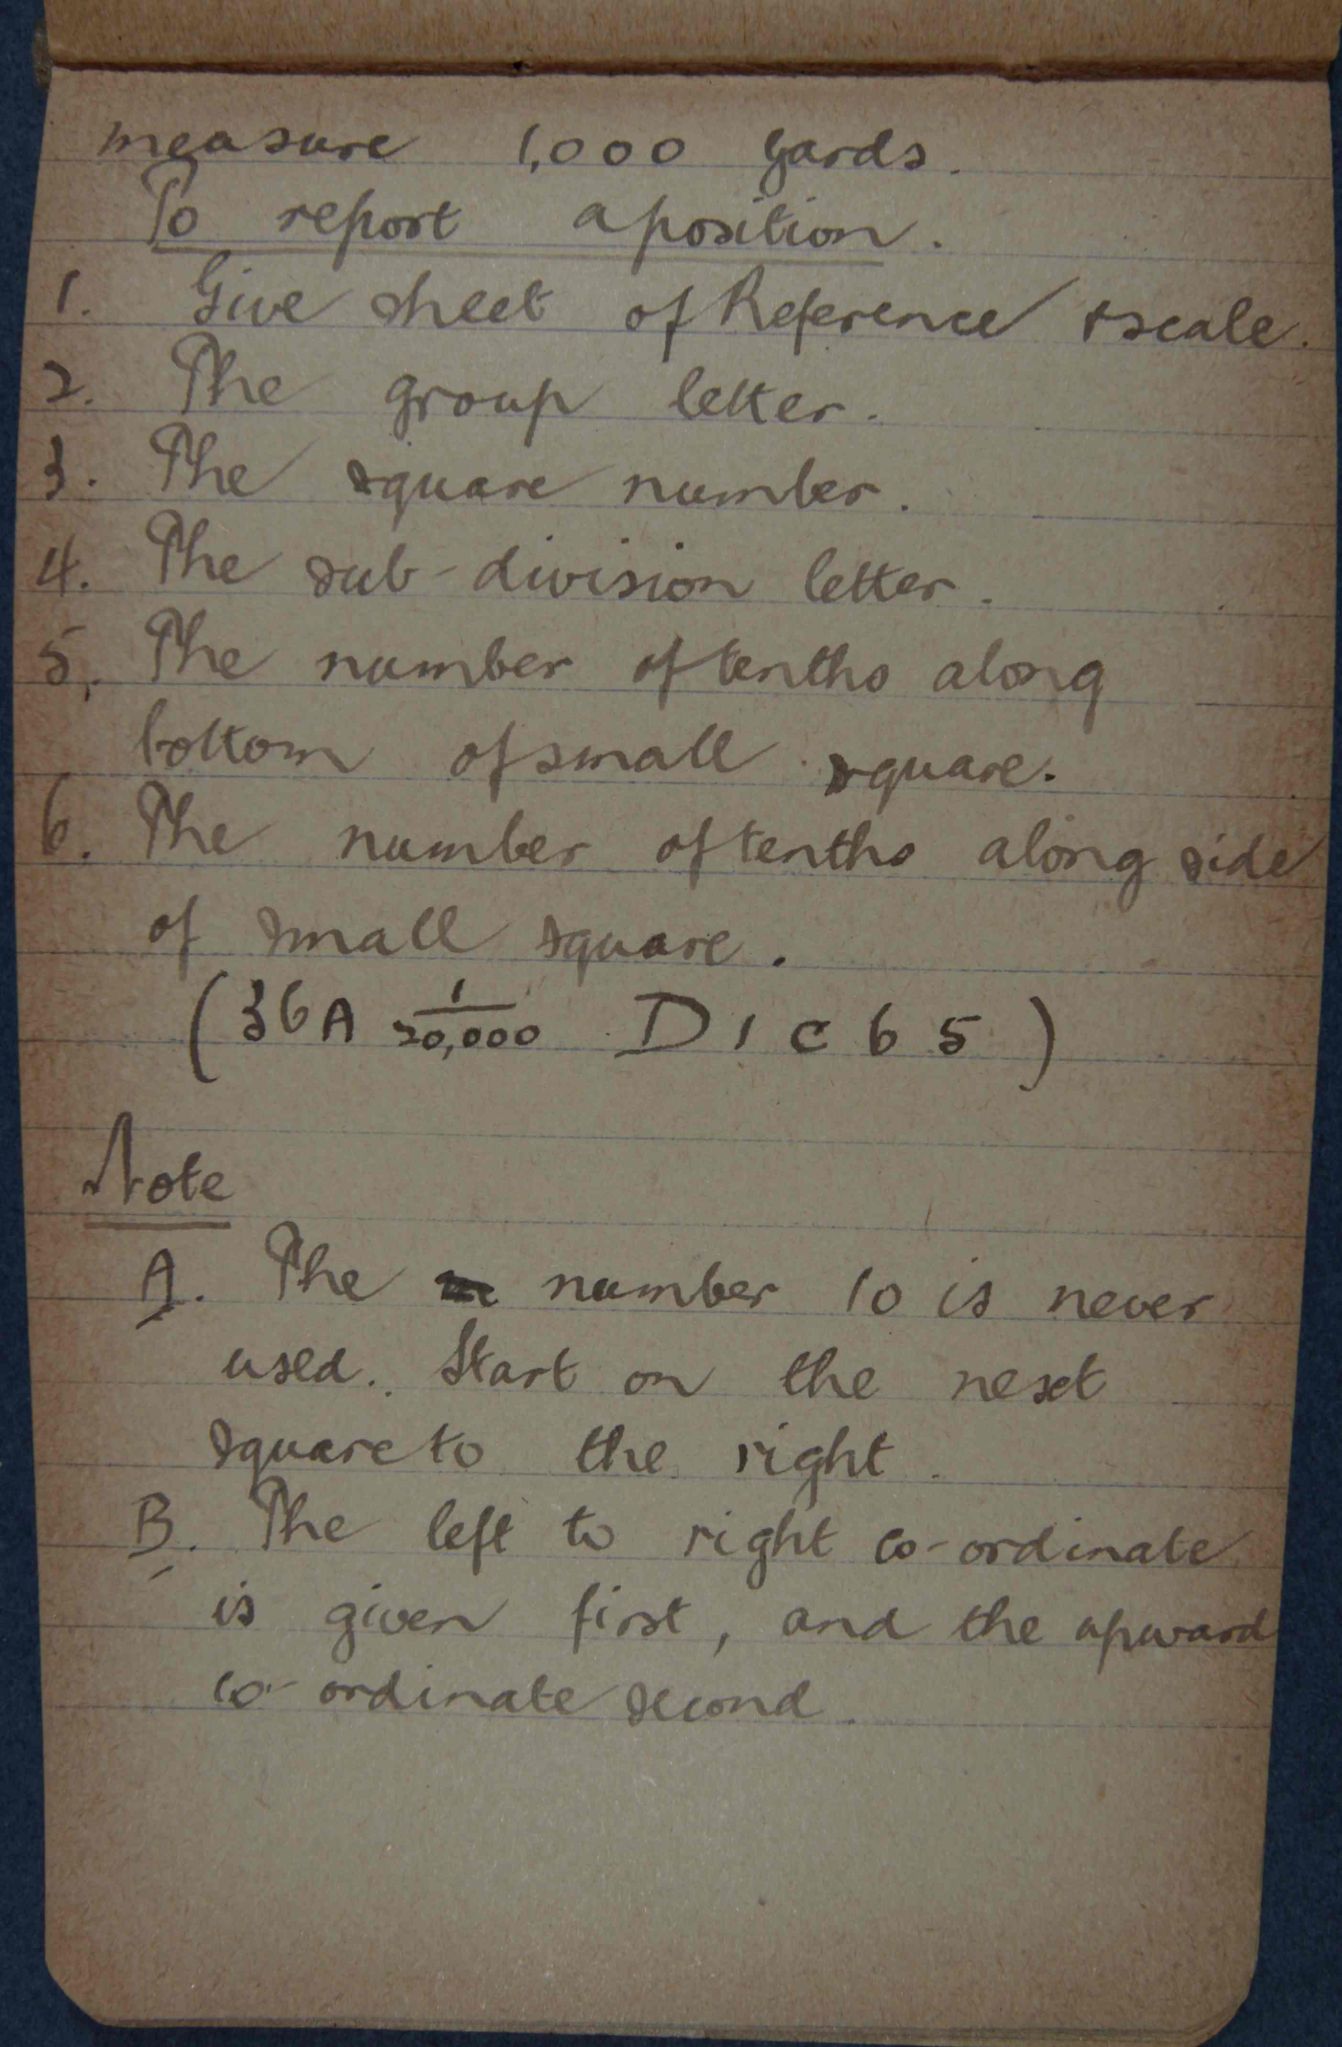 measure 1,000 yards.
To report a position.
1. Give sheet of Reference & scale.
2. The group letter.
3. The square number.
4. The sub-division letter.
5. The number of tenths along
bottom of small square.
6. The number of tenths along side
of small square.
(36A 1/20,000 D 1 c 6 5)
Note
A. The number 10 is never
used. Start on the next
square to the right.
B. The left to right co-ordinate
is given first, and the upward
co-ordinate second.